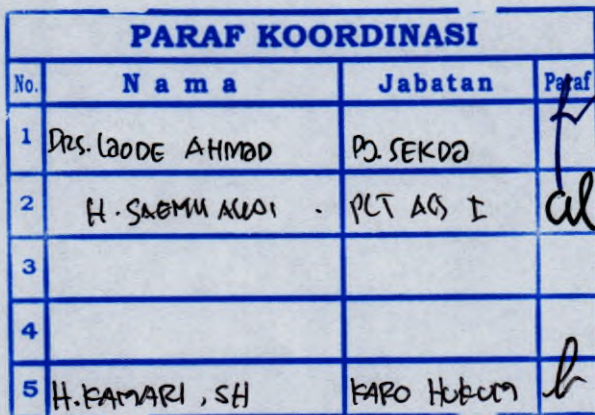 PARAF KOORDINASI
No. Nama Jabatan Paraf
1 Drs. LAODE AHMAD PJ. SEKDA
2 H. PLT
3
4
5 H. KAMARI, SH KARO HUKUM